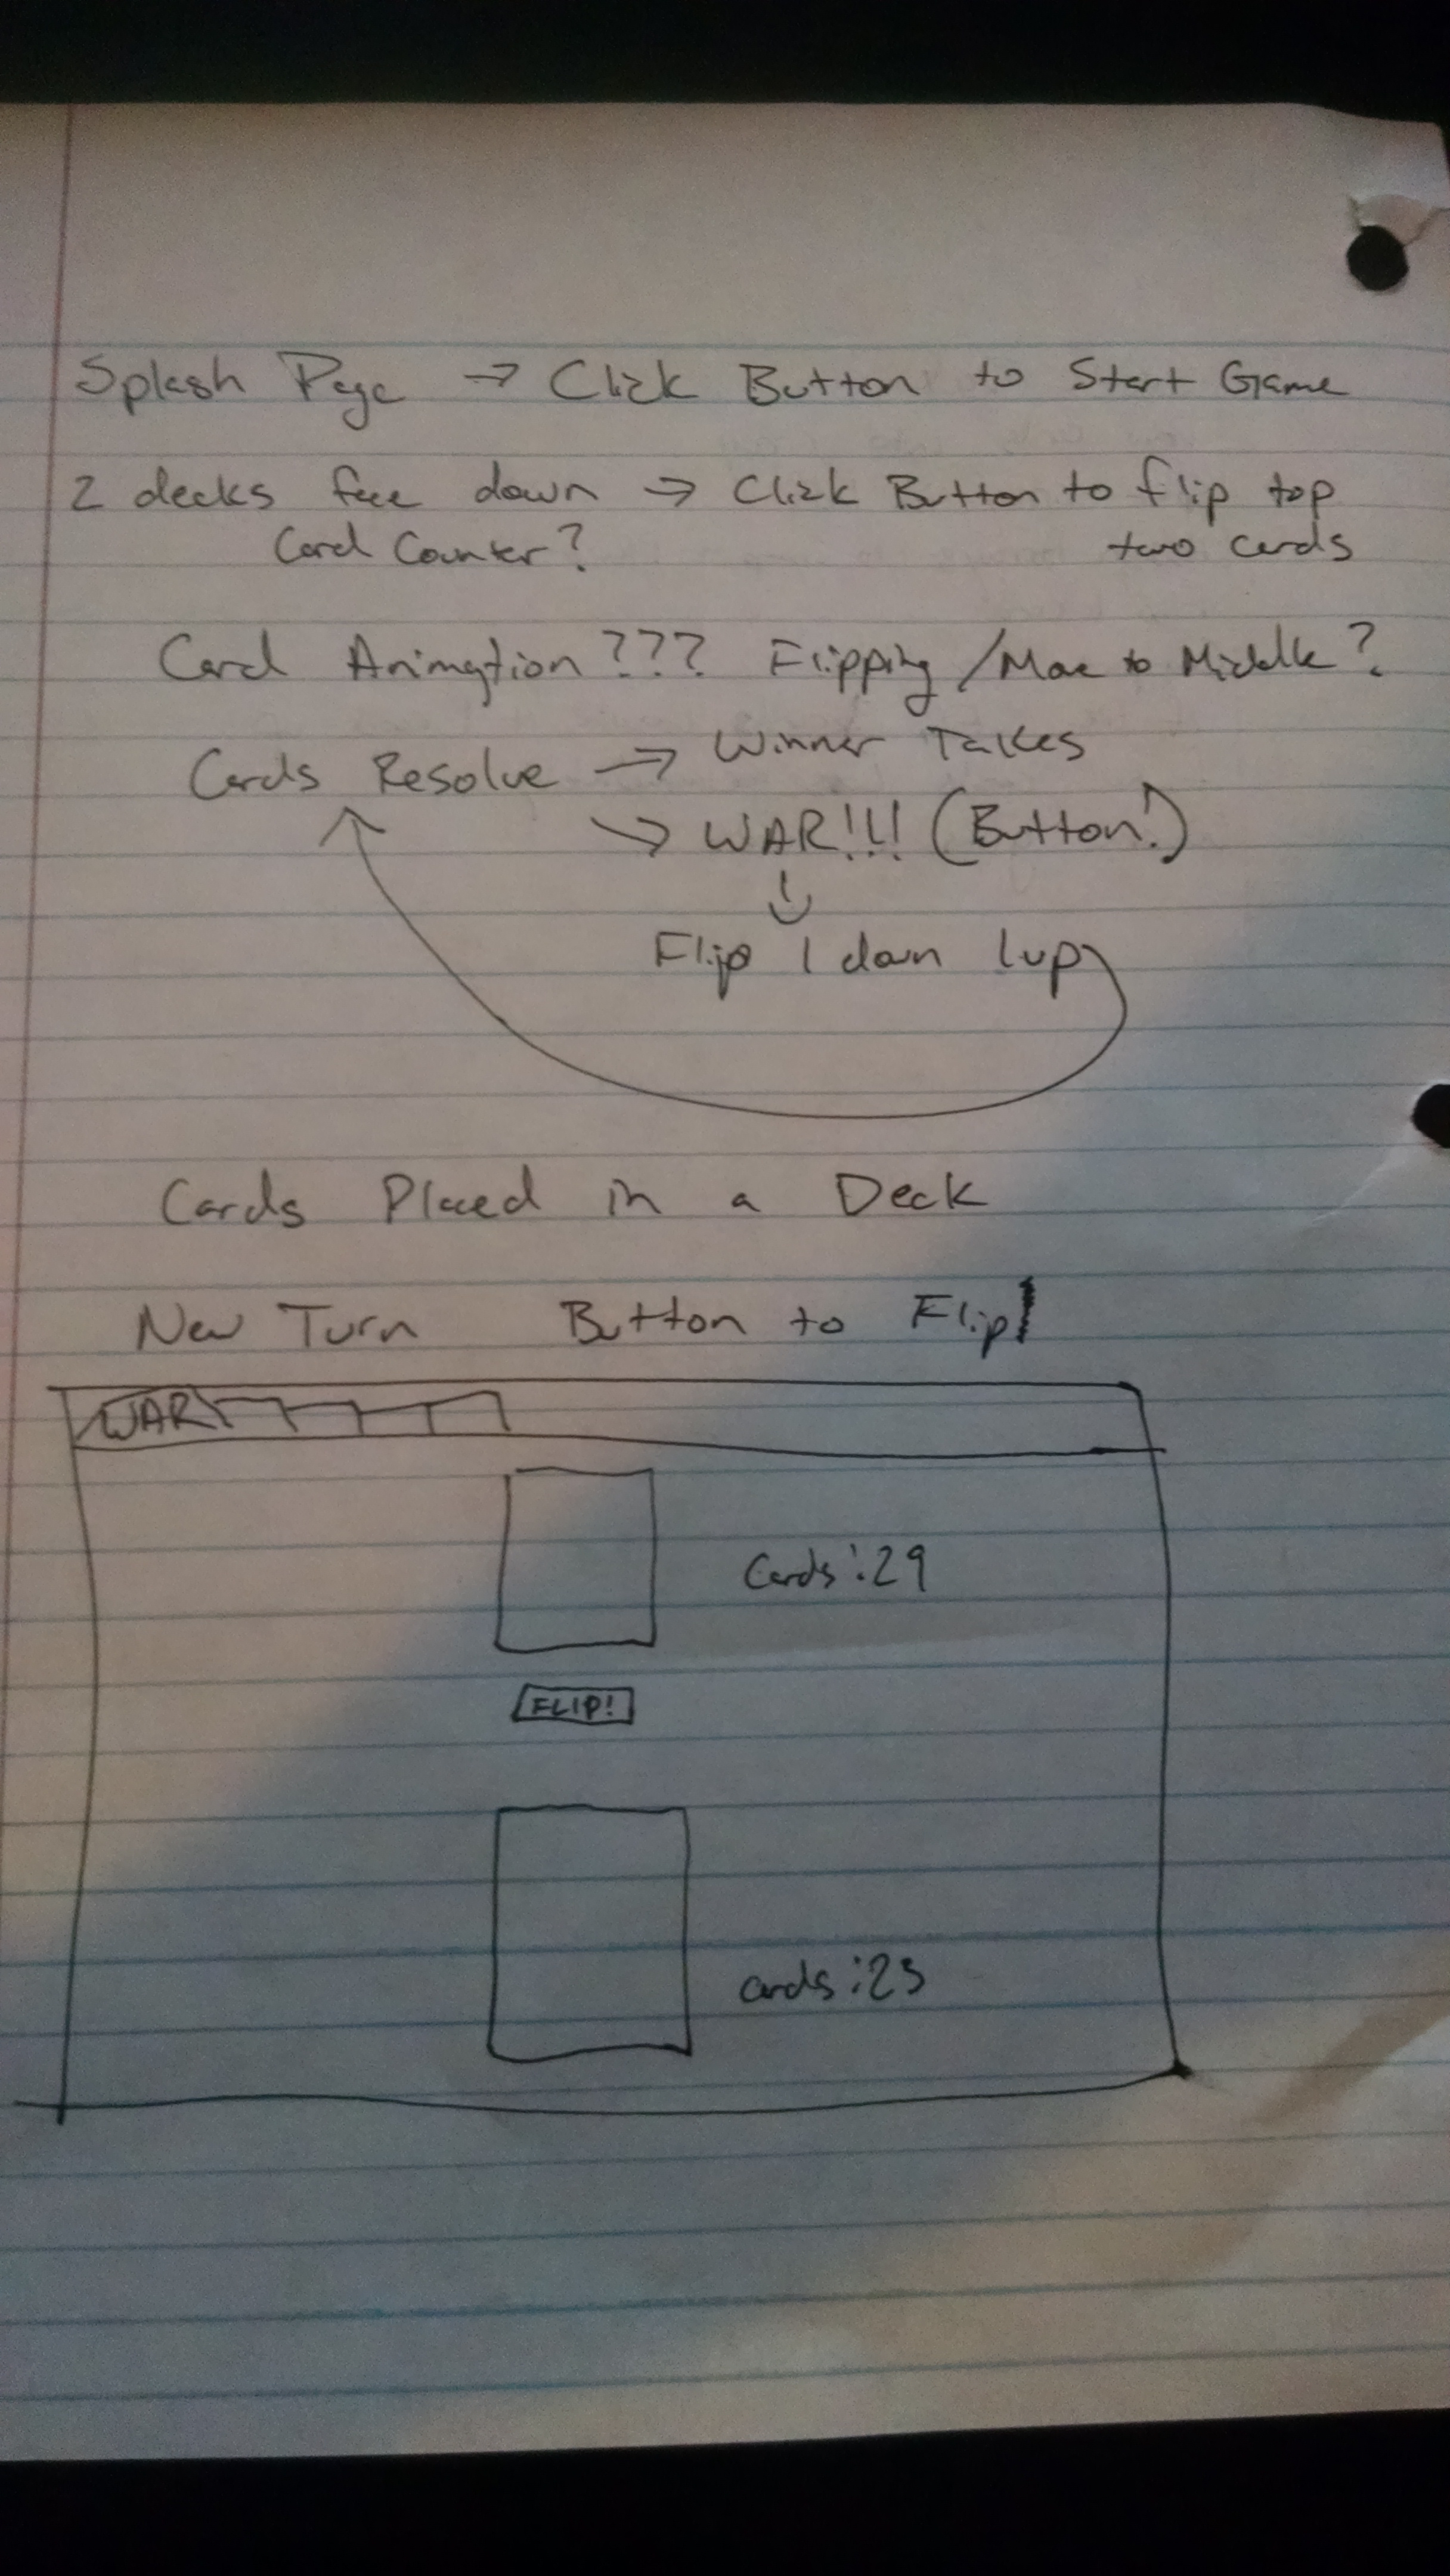 Splash Page → Click Button to Start Game
2 decks face down → Click Button to flip top
Card Counter? two cards
Card Animation??? Flipping/Move to Middle?
Cards Resolve → Winner Takes
→ WAR!!! (Button!)
Flip 1 down 1 up
Cards Placed in a Deck
New Turn Button to Flip!
WAR
Cards: 29
FLIP!
cards: 23